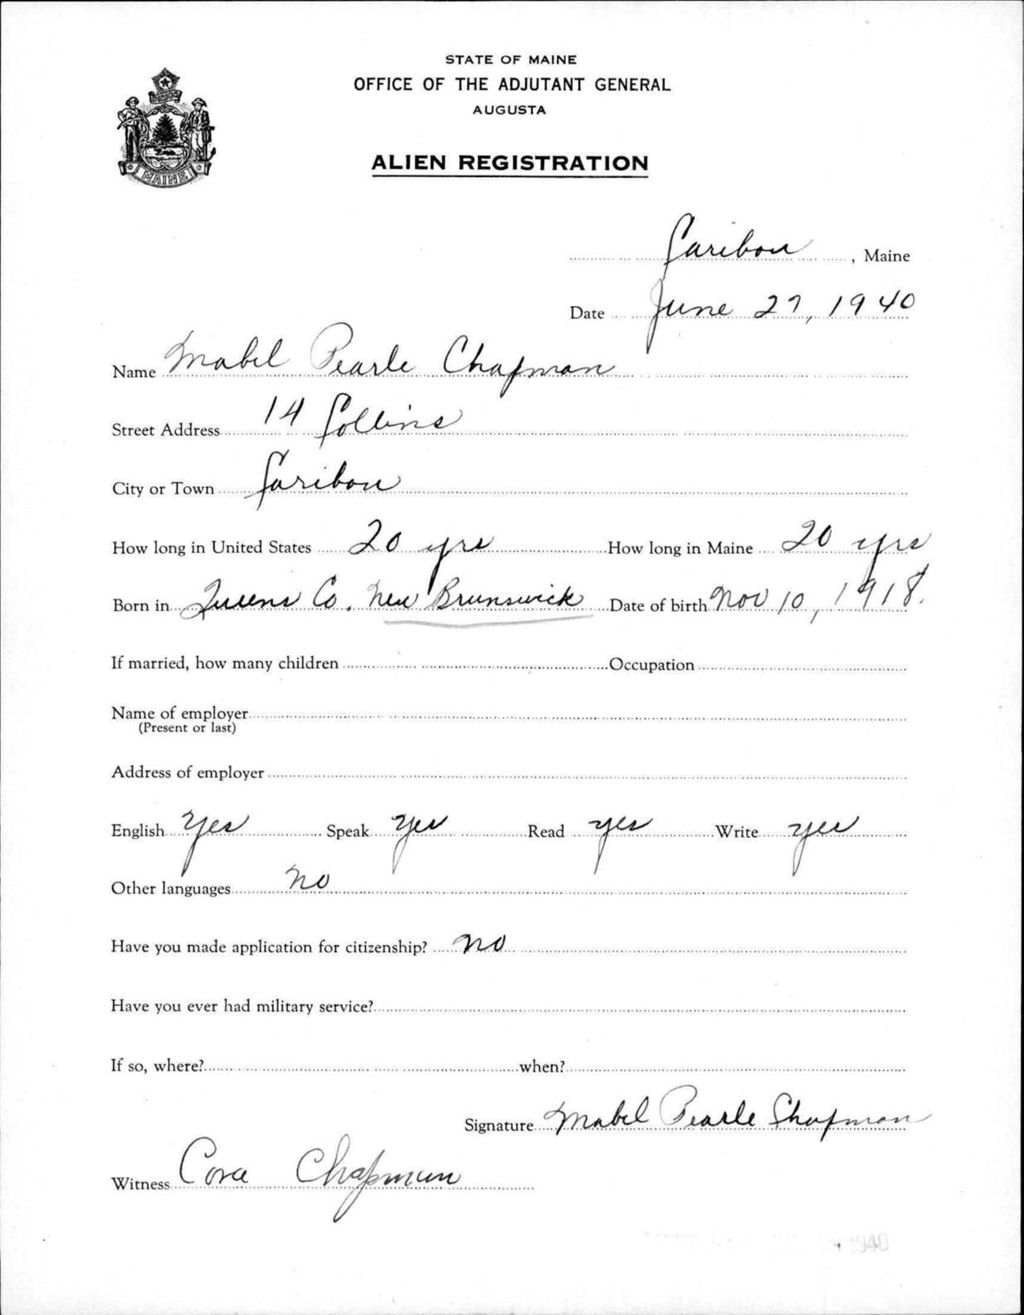 STATE OF MAINE
OFFICE OF THE ADJUTANT GENERAL
AUGUSTA
ALIEN REGISTRATION
MAINE
Caribou, Maine
Date June 27, 1940
Name Mabel Pearle Chapman
Street Address 14 Collins
City or Town Caribou
How long in United States 20 yrs How long in Maine 20 yrs
Born in Queens Co. New Brunswick Date of birth Nov 10, 1918.
If married, how many children Occupation
Name of employer
(Present or last)
Address of employer
English Yes Speak Yes Read yes Write yes
Other languages no
Have you made application for citizenship? no
Have you ever had military service?
If so, where? when?
Signature Mabel Pearle Chapman
Witness Cora Chapman
1940